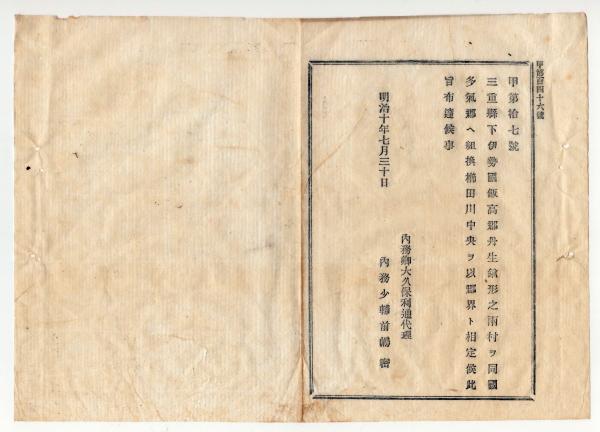 甲第百四十六號
甲第拾七號
三重縣下伊勢國飯高郡丹生鍬形之兩村ヲ同國
多氣郡ヘ組換櫛田川中央ヲ以郡界ト相定候此
旨布達候事
明治十年七月三十日
內務卿大久保利通代理
內務少輔前島密